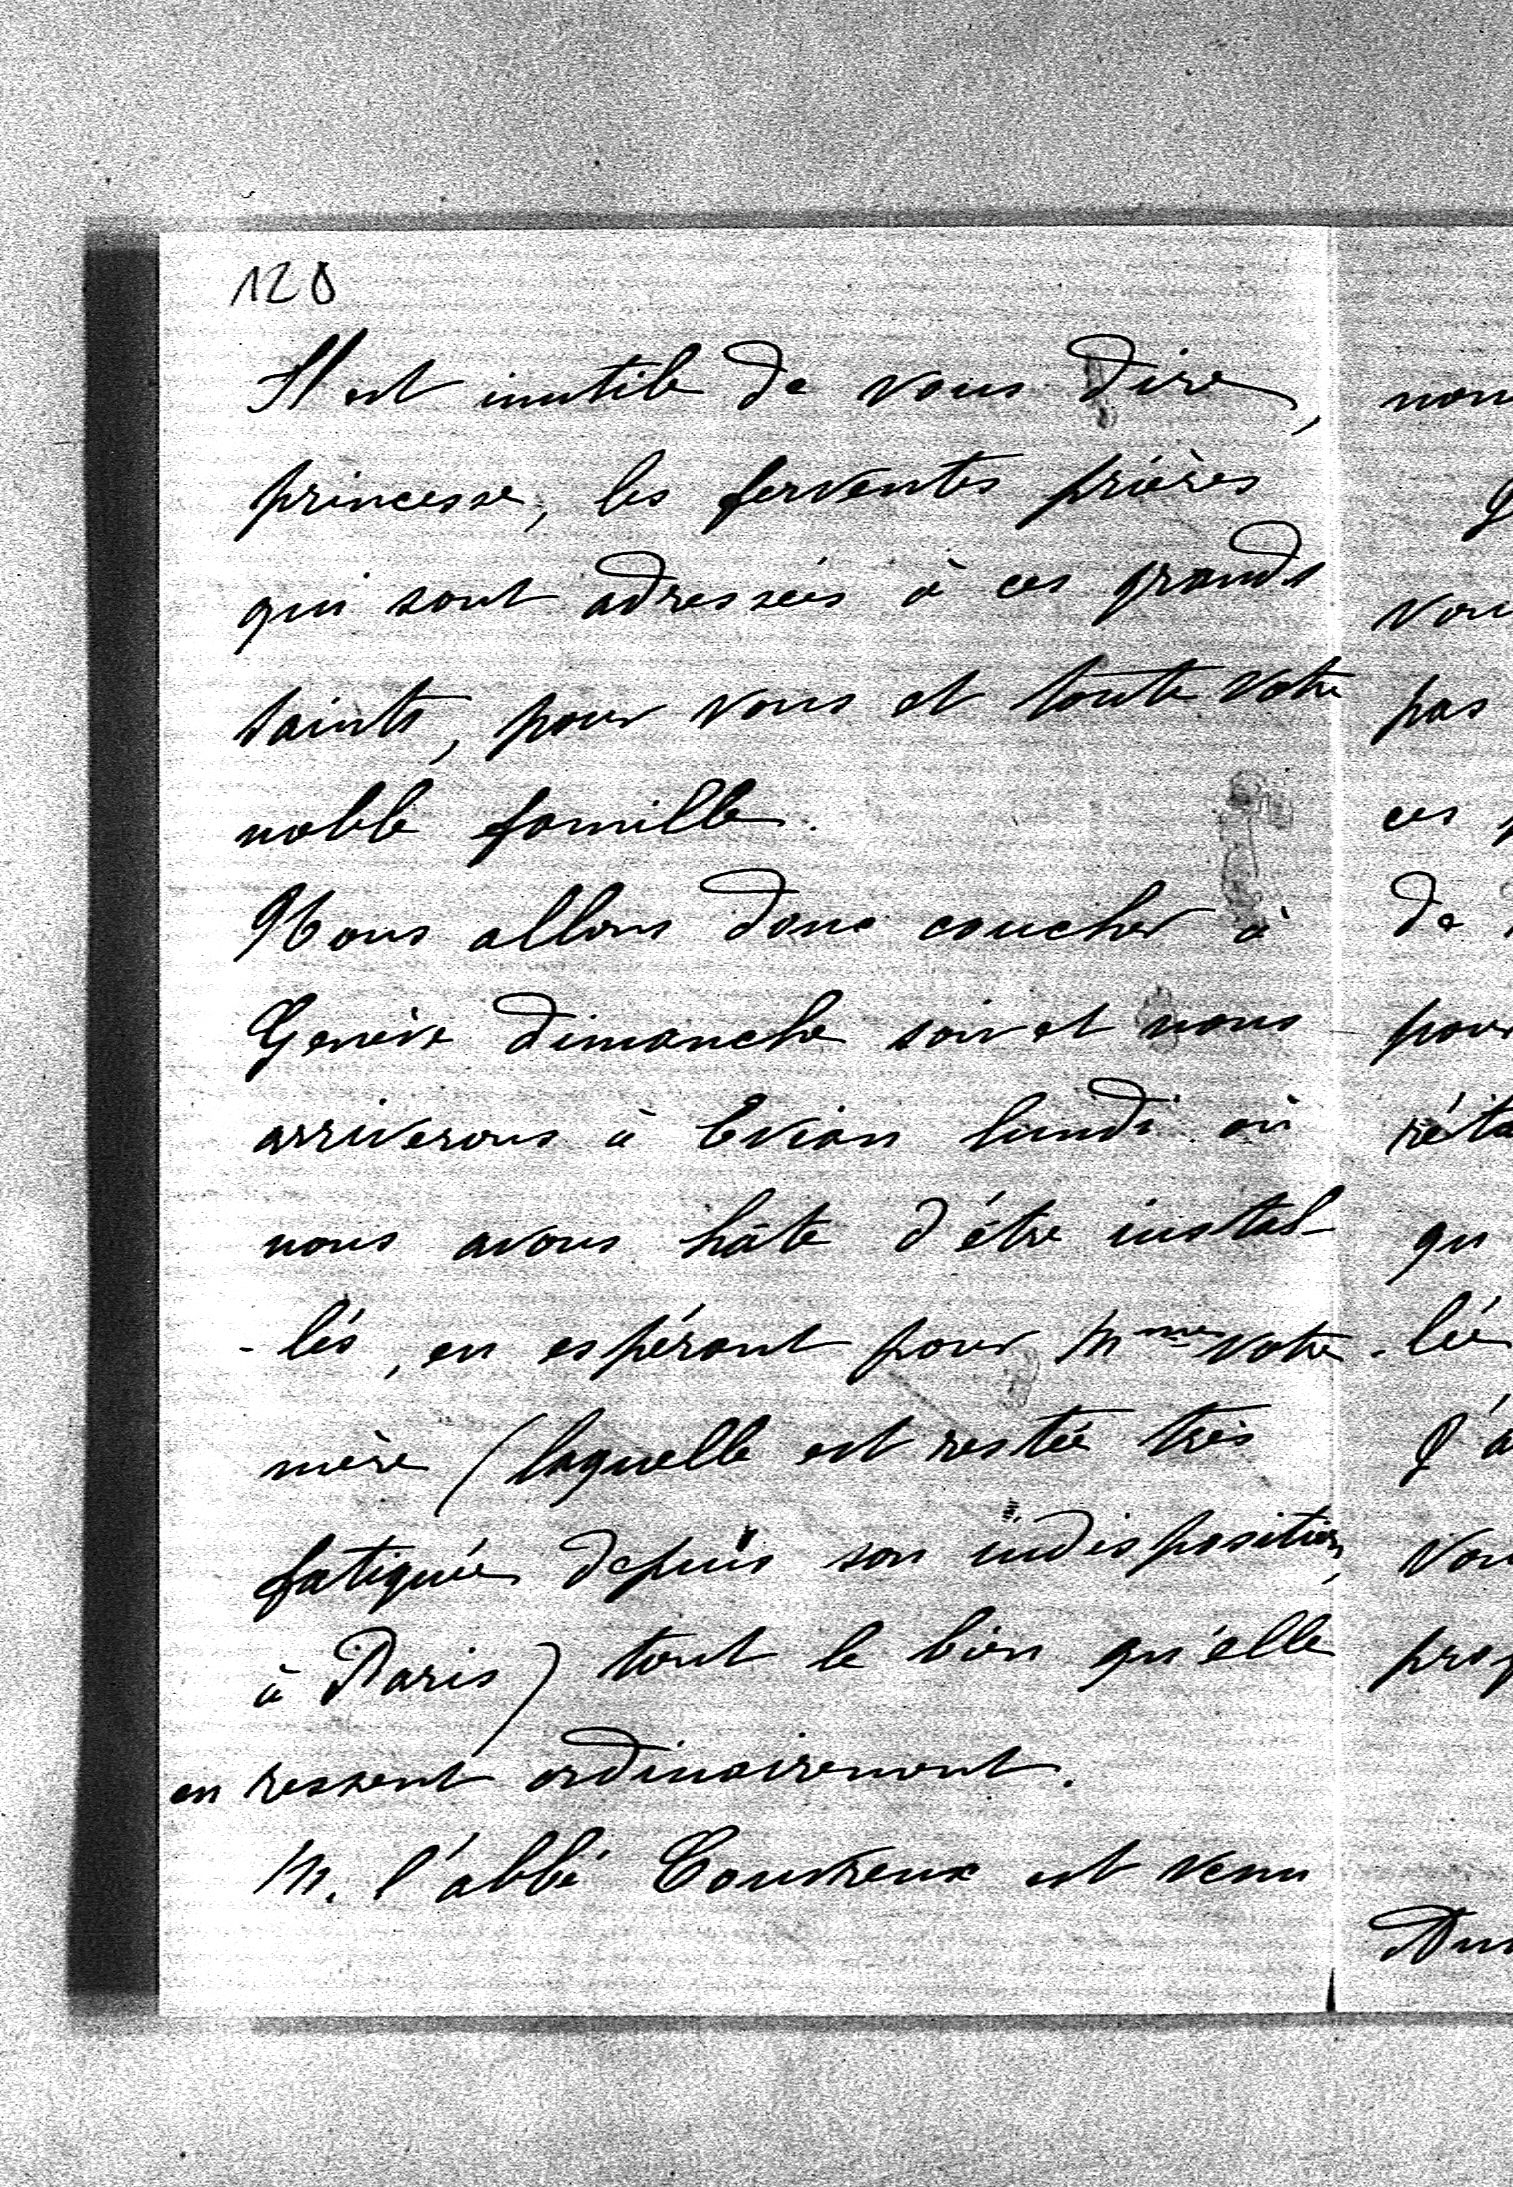 120
Il est inutile de vous dire,
princesse, les ferventes prières
qui sont adressées à ces grands
saints, pour vous et toute votre
noble famille.
Nous allons donc coucher à
Genève dimanche soir et nous
arriverons à Evian lundi où
nous avons hâte d'être instal-
-lés, en espérant pour Mme votre
mère (laquelle est restée très
fatiguée depuis son indisposition,
à Paris) tout le bien qu'elle
en ressent ordinairement.
M. l'abbé Couvreux est venu
vou
pas
ces
de
pour
réta
qu
-lée
J'a
vou